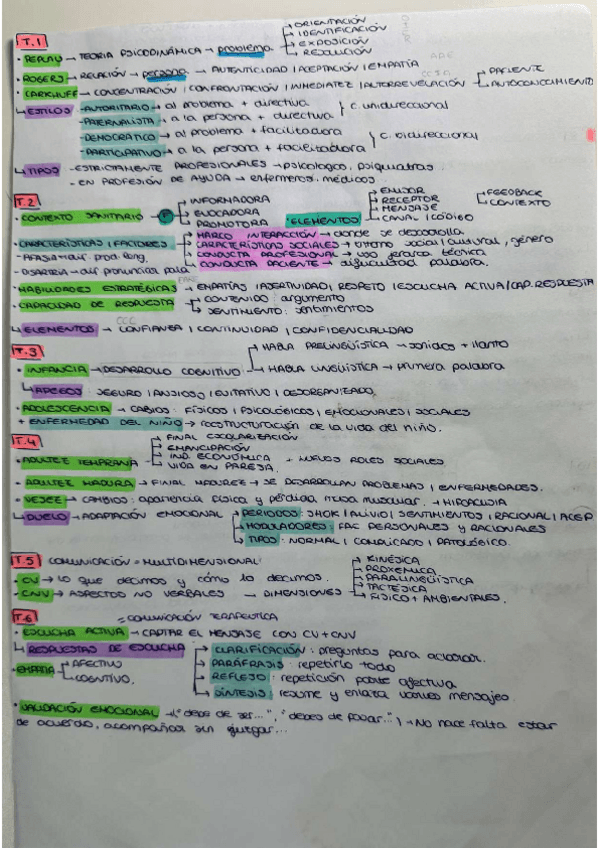 T.1
→ ORIENTACIÓN
→ IDENTIFICACIÓN
→ EXPOSICIÓN
→ RESOLUCIÓN
· REPLAU → TEORÍA PSICODINÁMICA → problema
· ROGERS → RELACIÓN → persona → AUTENTICIDAD | ACEPTACIÓN | EMPATÍA
· CARKHUFF → CONCENTRACIÓN | CONFRONTACIÓN | INMEDIATEZ | AUTORREVELACIÓN → PACIENTE
→ AUTOCONOCIMIENTO
↳ ESTILOS → AUTORITARIO → al problema + directiva
→ PATERNALISTA → a la persona + directiva } C. unidireccional
→ DEMOCRÁTICO → al problema + facilitadora
→ PARTICIPATIVO → a la persona + facilitadora } C. bidireccional
↳ TIPOS - ESTRICTAMENTE PROFESIONALES → psicologos, psiquiatras.
- EN PROFESIÓN DE AYUDA → enfermeros, médicos.
T.2
· CONTEXTO SANITARIO → F → INFORMADORA
→ EVOCADORA
→ PROMOTORA
· ELEMENTOS → EMISOR
→ RECEPTOR
→ MENSAJE
→ CANAL | CÓDIGO
→ FEEDBACK
→ CONTEXTO
· CARACTERÍSTICAS | FACTORES → MARCO INTERACCIÓN → donde se desarrolla.
- AFASIA → dif. prod. leng. → CARACTERÍSTICAS SOCIALES → entorno social | cultural, género
- DISARTRIA → dif pronunciar pala → CONDUCTA PROFESIONAL → uso jerarca técnica
→ CONDUCTA PACIENTE → dificultad palabra.
· HABILIDADES ESTRATÉGICAS → EMPATÍAS | ASERTIVIDAD | RESPETO | ESCUCHA ACTIVA | CAP. RESPUESTA
· CAPACIDAD DE RESPUESTA → CONTENIDO: argumento
→ SENTIMIENTO: sentimientos
CCC
↳ ELEMENTOS → CONFIANZA | CONTINUIDAD | CONFIDENCIALIDAD
T.3
· INFANCIA → DESARROLLO COGNITIVO → HABLA PRELINGÜÍSTICA → sonidos + llanto
→ HABLA LINGÜÍSTICA → primera palabra
↳ APEGOS: SEGURO | ANSIOSO | EVITATIVO | DESORGANIZADO.
· ADOLESCENCIA → CABIOS: FÍSICOS | PSICOLÓGICOS | EMOCIONALES | SOCIALES
+ ENFERMEDAD DEL NIÑO → reestructuración de la vida del niño.
T.4
· ADULTEZ TEMPRANA → FINAL ESCOLARIZACIÓN
→ EMANCIPACIÓN
→ IND. ECONÓMICA + NUEVOS ROLES SOCIALES
→ VIDA EN PAREJA.
· ADULTEZ MADURA → FINAL MADUREZ → SE DESARROLLAN PROBLEMAS | ENFERMEDADES.
· VEJEZ → CAMBIOS: apariencia física y pérdida masa muscular. + HIPOACUSIA
↳ DUELO → ADAPTACIÓN EMOCIONAL → PERIODOS: SHOK | ALIVIO | SENTIMIENTOS | RACIONAL | ACEP
→ MODULADORES: FAC PERSONALES y RACIONALES
→ TIPOS: NORMAL | COMPLICADO | PATOLÓGICO.
T.5 COMUNICACIÓN = MULTIDIMENSIONAL
· CV → lo que decimos y cómo lo decimos.
· CNV → ASPECTOS NO VERBALES → DIMENSIONES → KINÉSICA
→ PROXÉMICA
→ PARALINGÜÍSTICA
→ TACTÉSICA
→ FÍSICO + AMBIENTALES.
T.6 = COMUNICACIÓN TERAPEUTICA
· ESCUCHA ACTIVA → CAPTAR EL MENSAJE CON CV + CNV
↳ RESPUESTAS DE ESCUCHA → CLARIFICACIÓN: preguntas para aclarar.
· EMPATIA → AFECTIVO → PARÁFRASIS: repetirlo todo
→ COGNITIVO. → REFLEJO: repetición parte afectiva
→ SÍNTESIS: resume y enlaza varios mensajes.
· VALIDACIÓN EMOCIONAL → ("debe de ser...", "debes de pasar...") → No hace falta estar
de acuerdo, acompañar sin juzgar...